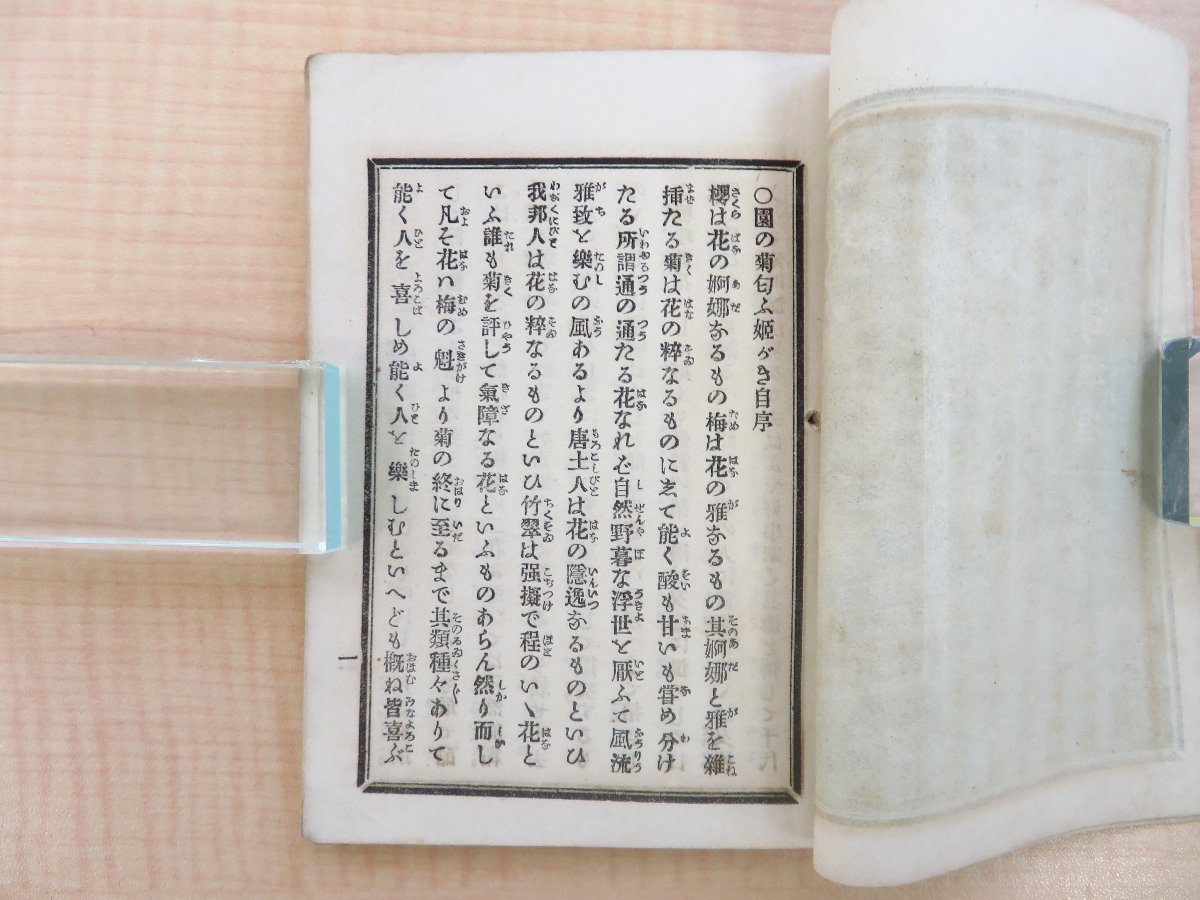 ○園の菊匂ふ姫がき自序
櫻は花の婀娜なるもの梅は花の雅なるもの其婀娜と雅を雜
挿たる菊は花の粹なるものにして能く酸も甘いも甞め分け
たる所謂通の通たる花なれば自然野暮な浮世を厭ふて風流
雅致を樂むの風あるより唐土人は花の隱逸なるものといひ
我邦人は花の粹なるものといひ竹翠は强擬で程のいゝ花と
いふ誰も菊を評して氣障なる花といふものあらん然り而し
て凡そ花ハ梅の魁より菊の終に至るまで其類種々ありて
能く人を喜しめ能く人を樂しむといへども概ね皆喜ぶ
一